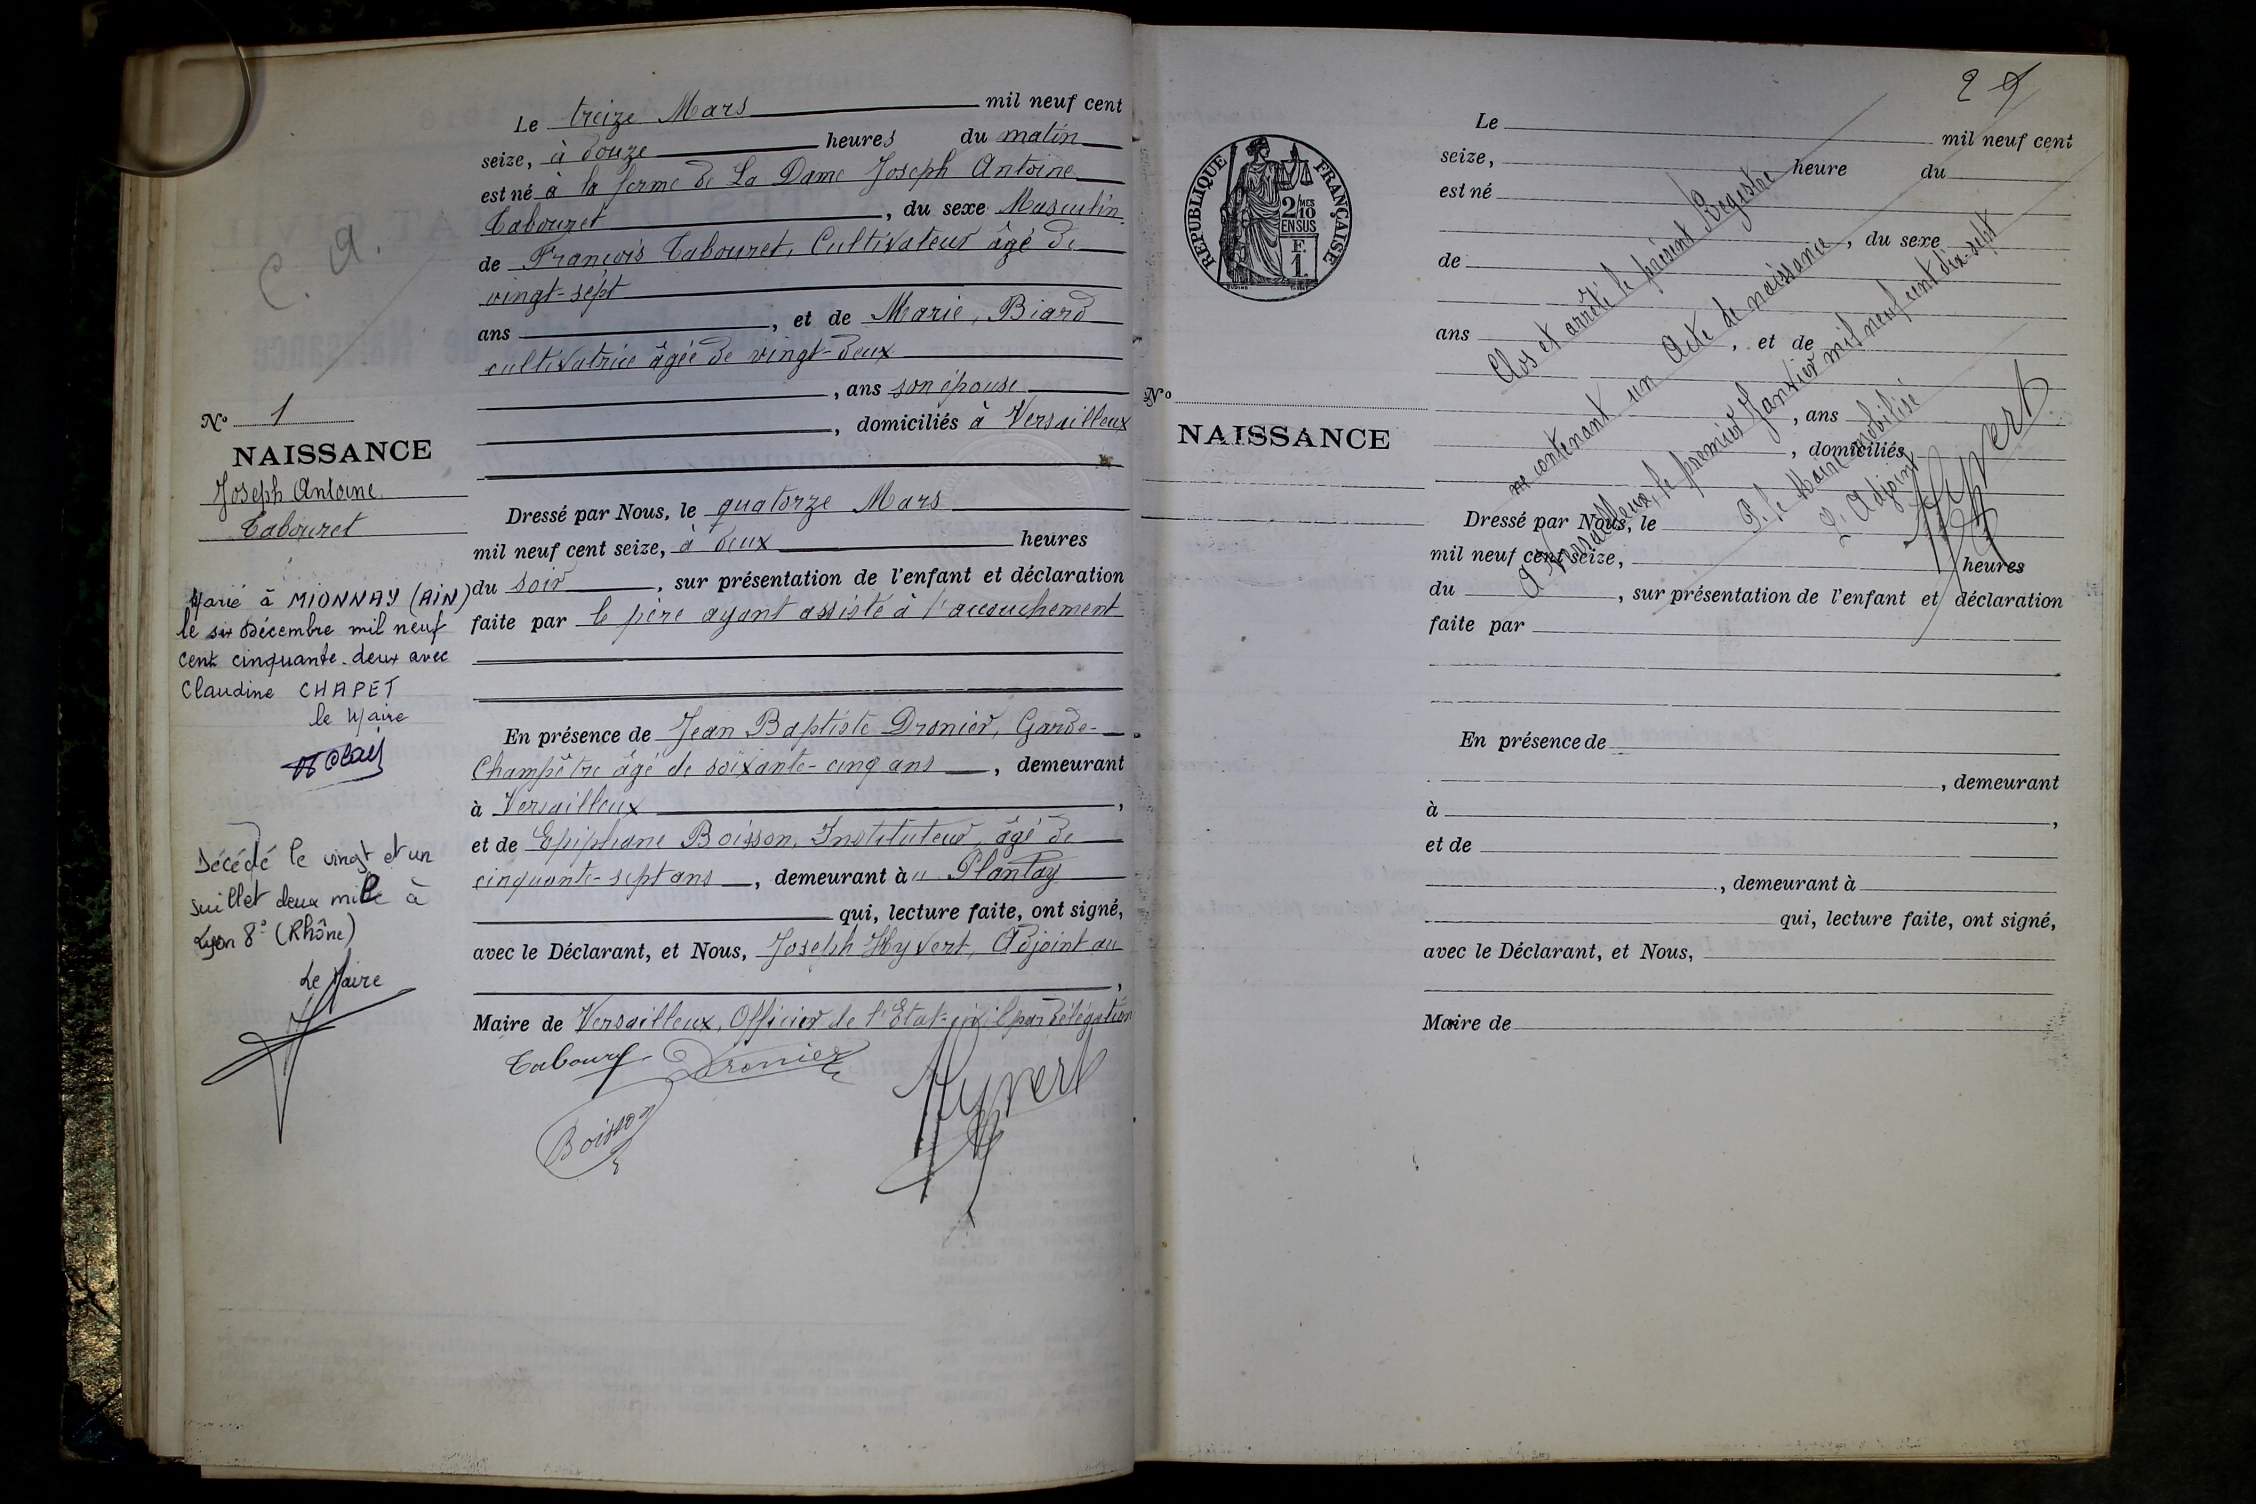 C. A.
N° 1
NAISSANCE
Joseph Antoine
Tabouret
Marié à MIONNAY (AIN)
le six Décembre mil neuf
cent cinquante-deux avec
Claudine CHAPET
le Maire
Décédé le vingt et un
Juillet deux mille à
Lyon 8° (Rhône)
Le Maire
Le treize Mars mil neuf cent
seize, à douze heures du matin
est né à la ferme de La Dame Joseph Antoine
Tabouret, du sexe Masculin
de François Tabouret, Cultivateur âgé de
vingt-sept
ans, et de Marie, Biard
cultivatrice âgée de vingt-deux
, ans son épouse
, domiciliés à Versailleux
Dressé par Nous, le quatorze Mars
mil neuf cent seize, à deux heures
du soir, sur présentation de l'enfant et déclaration
faite par le père ayant assisté à l'accouchement
En présence de Jean Baptiste Dronier, Garde-
Champêtre âgé de soixante-cinq ans, demeurant
à Versailleux,
et de Epiphane Boisson, Instituteur, âgé de
cinquante-sept ans, demeurant à u Plantay
qui, lecture faite, ont signé,
avec le Déclarant, et Nous, Joseph Hyvert, Adjoint au
,
Maire de Versailleux, Officier de l'Etat-civil par délégation
Tabouret Dronier
Hyvert
Boisson
REPUBLIQUE FRANÇAISE
2/10 MES
EN SUS
F.
1.
N°
NAISSANCE
29
Le mil neuf cent
seize, heure du
est né
, du sexe
de
ans, et de
, ans
, domiciliés
Dressé par Nous, le
mil neuf cent seize, heures
du, sur présentation de l'enfant et déclaration
faite par
En présence de
, demeurant
à,
et de
, demeurant à
qui, lecture faite, ont signé,
avec le Déclarant, et Nous,
Maire de
Clos et arrêté le présent Registre
ne contenant un Acte de naissance
A Versailleux, le premier Janvier mil neuf cent dix-sept
P. le Maire mobilisé
L'Adjoint
Hyvert